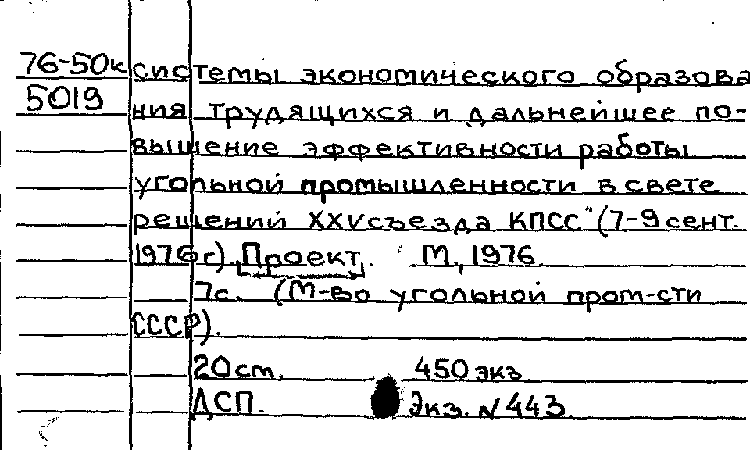 76-50к системы экономического образова
5019 ния трудящихся и дальнейшее по-
вышение эффективности работы
угольной промышленности в свете
решений XXV съезда КПСС" (7-9 сент.
1976 г.). Проект. М., 1976.
7с. (М-во угольной пром-сти
СССР).
20 см. 450 экз.
ДСП. Экз. N 443